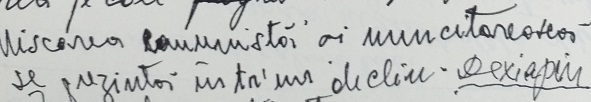 Miscarea comunistă si muncitorească
se prezintă într'un declin. Dexiapin